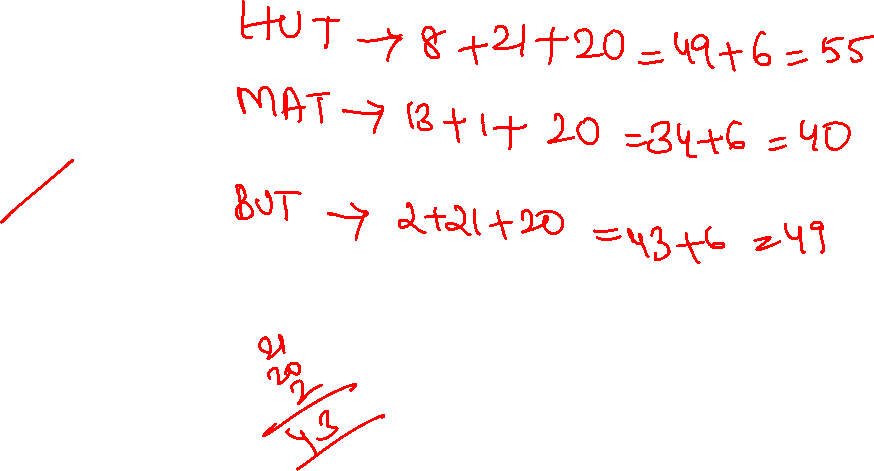 HUT → 8+21+20=49+6=55
MAT → 13+1+20=34+6=40
BUT → 2+21+20=43+6=49
21
20
2
43